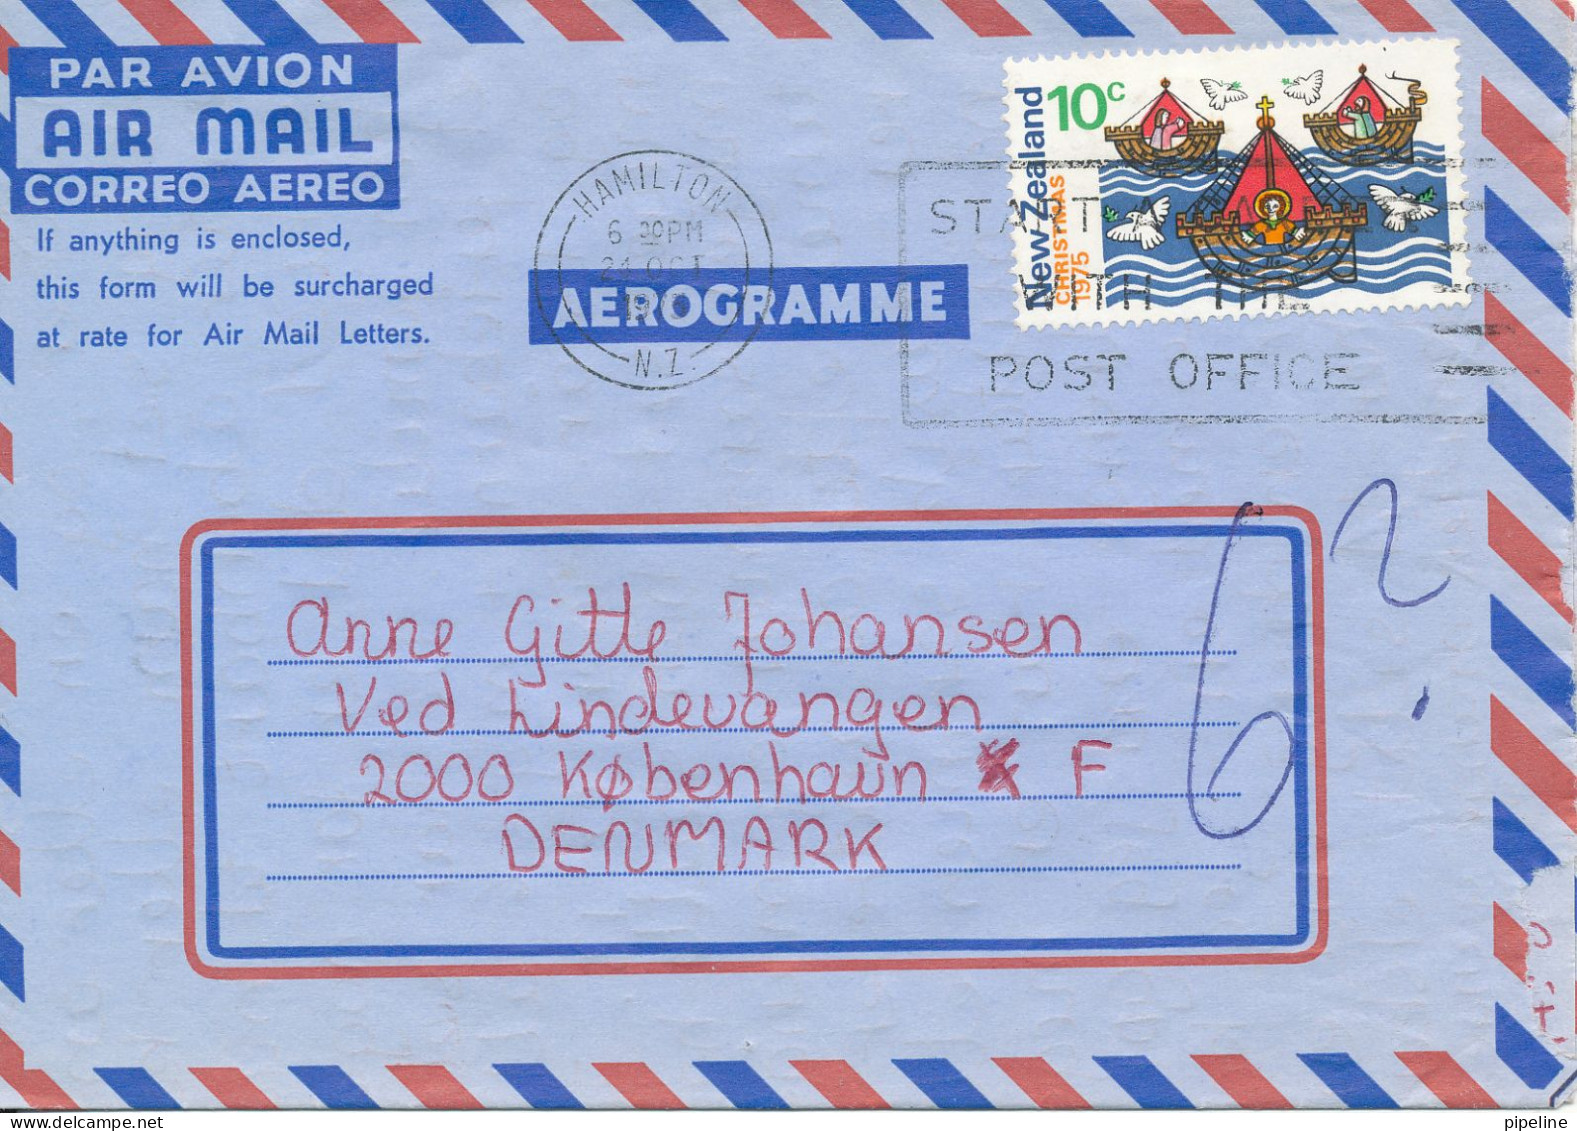 PAR AVION
AIR MAIL
CORREO AEREO
If anything is enclosed,
this form will be surcharged
at rate for Air Mail Letters.
HAMILTON
6 30PM
24 OCT
N.Z.
AEROGRAMME
New Zealand
10c
CHRISTMAS
1975
START
WITH THE
POST OFFICE
6?
Anne Gitte Johansen
Ved Lindevangen
2000 København F
DENMARK
pipeline